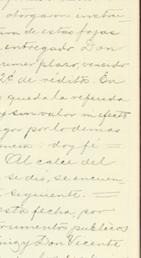 otorgaron instru-
va de estas fojas
entregado Don
rimer plazo, vencido
2¢ de réditos. En
queda la referida
y sin valor ni efecto
go por lo demas
doy fé =
Al calce del
se dió, se encuen-
siguiente. =
esta fecha, por
trumentos publicos
Don Vicente